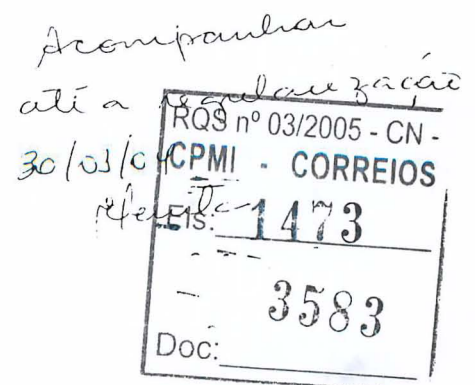 Acompanhar
até a regularização
30/03/04
RQS nº 03/2005 - CN -
CPMI - CORREIOS
Fls: 1473
3583
Doc: